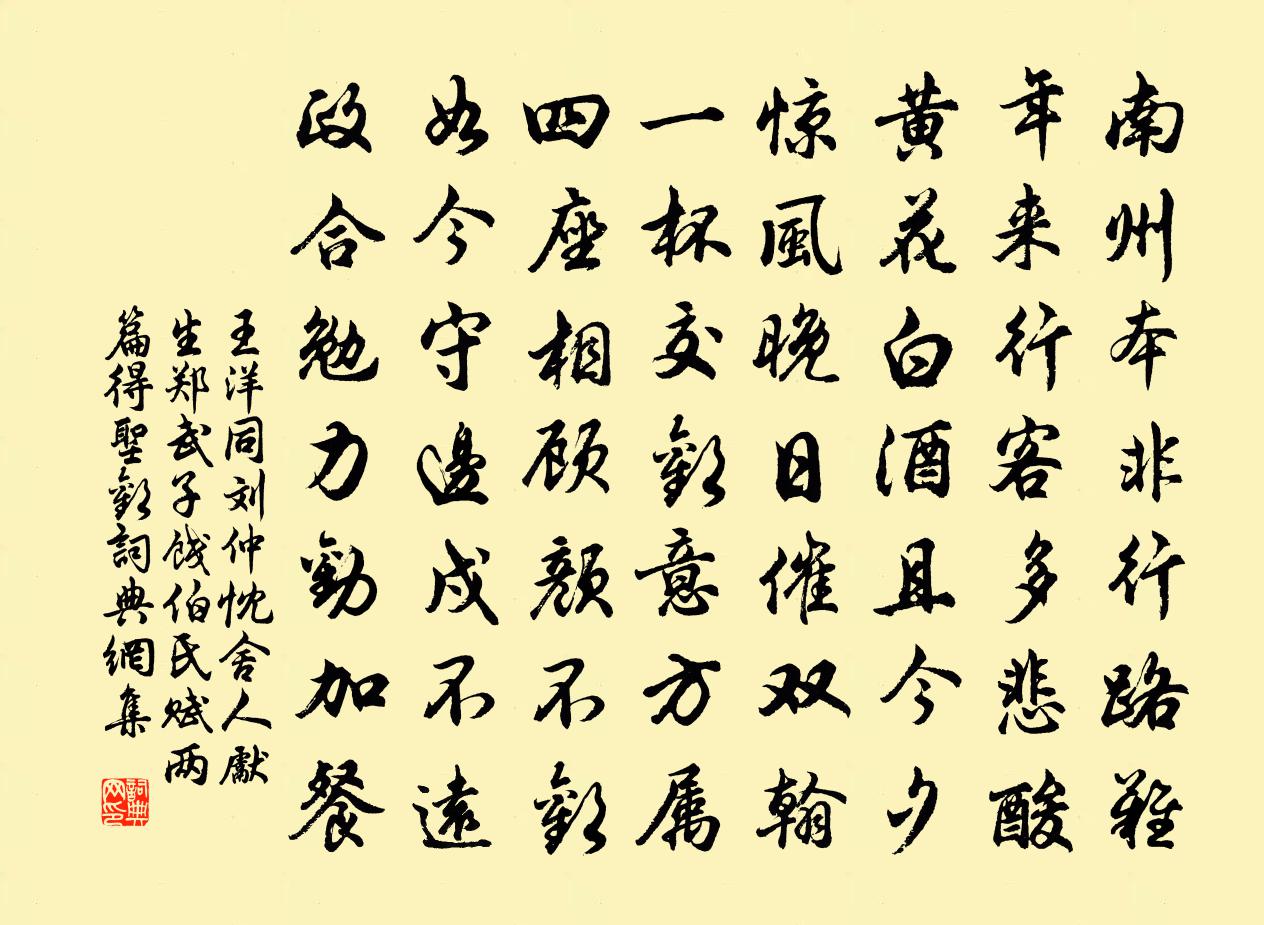 南州本非行路難
年来行客多悲酸
黄花白酒且今夕
惊風晚日催双翰
一杯交歡意方属
四座相顾顏不歡
如今守邊戍不遠
政合勉力勤加餐
王洋同刘仲忱舍人獻
生郑武子餞伯氏赋两
篇得聖歡詞典網集
詞典网印